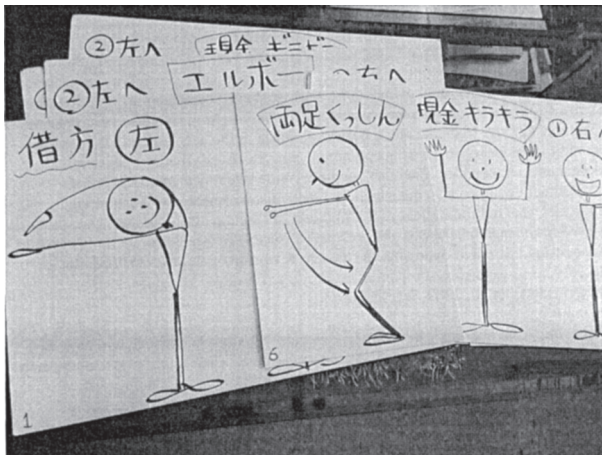 ②左へ
現金
②左へ
エルボー
右へ
借方 左
両足くっしん
現金キラキラ
①右
1
6